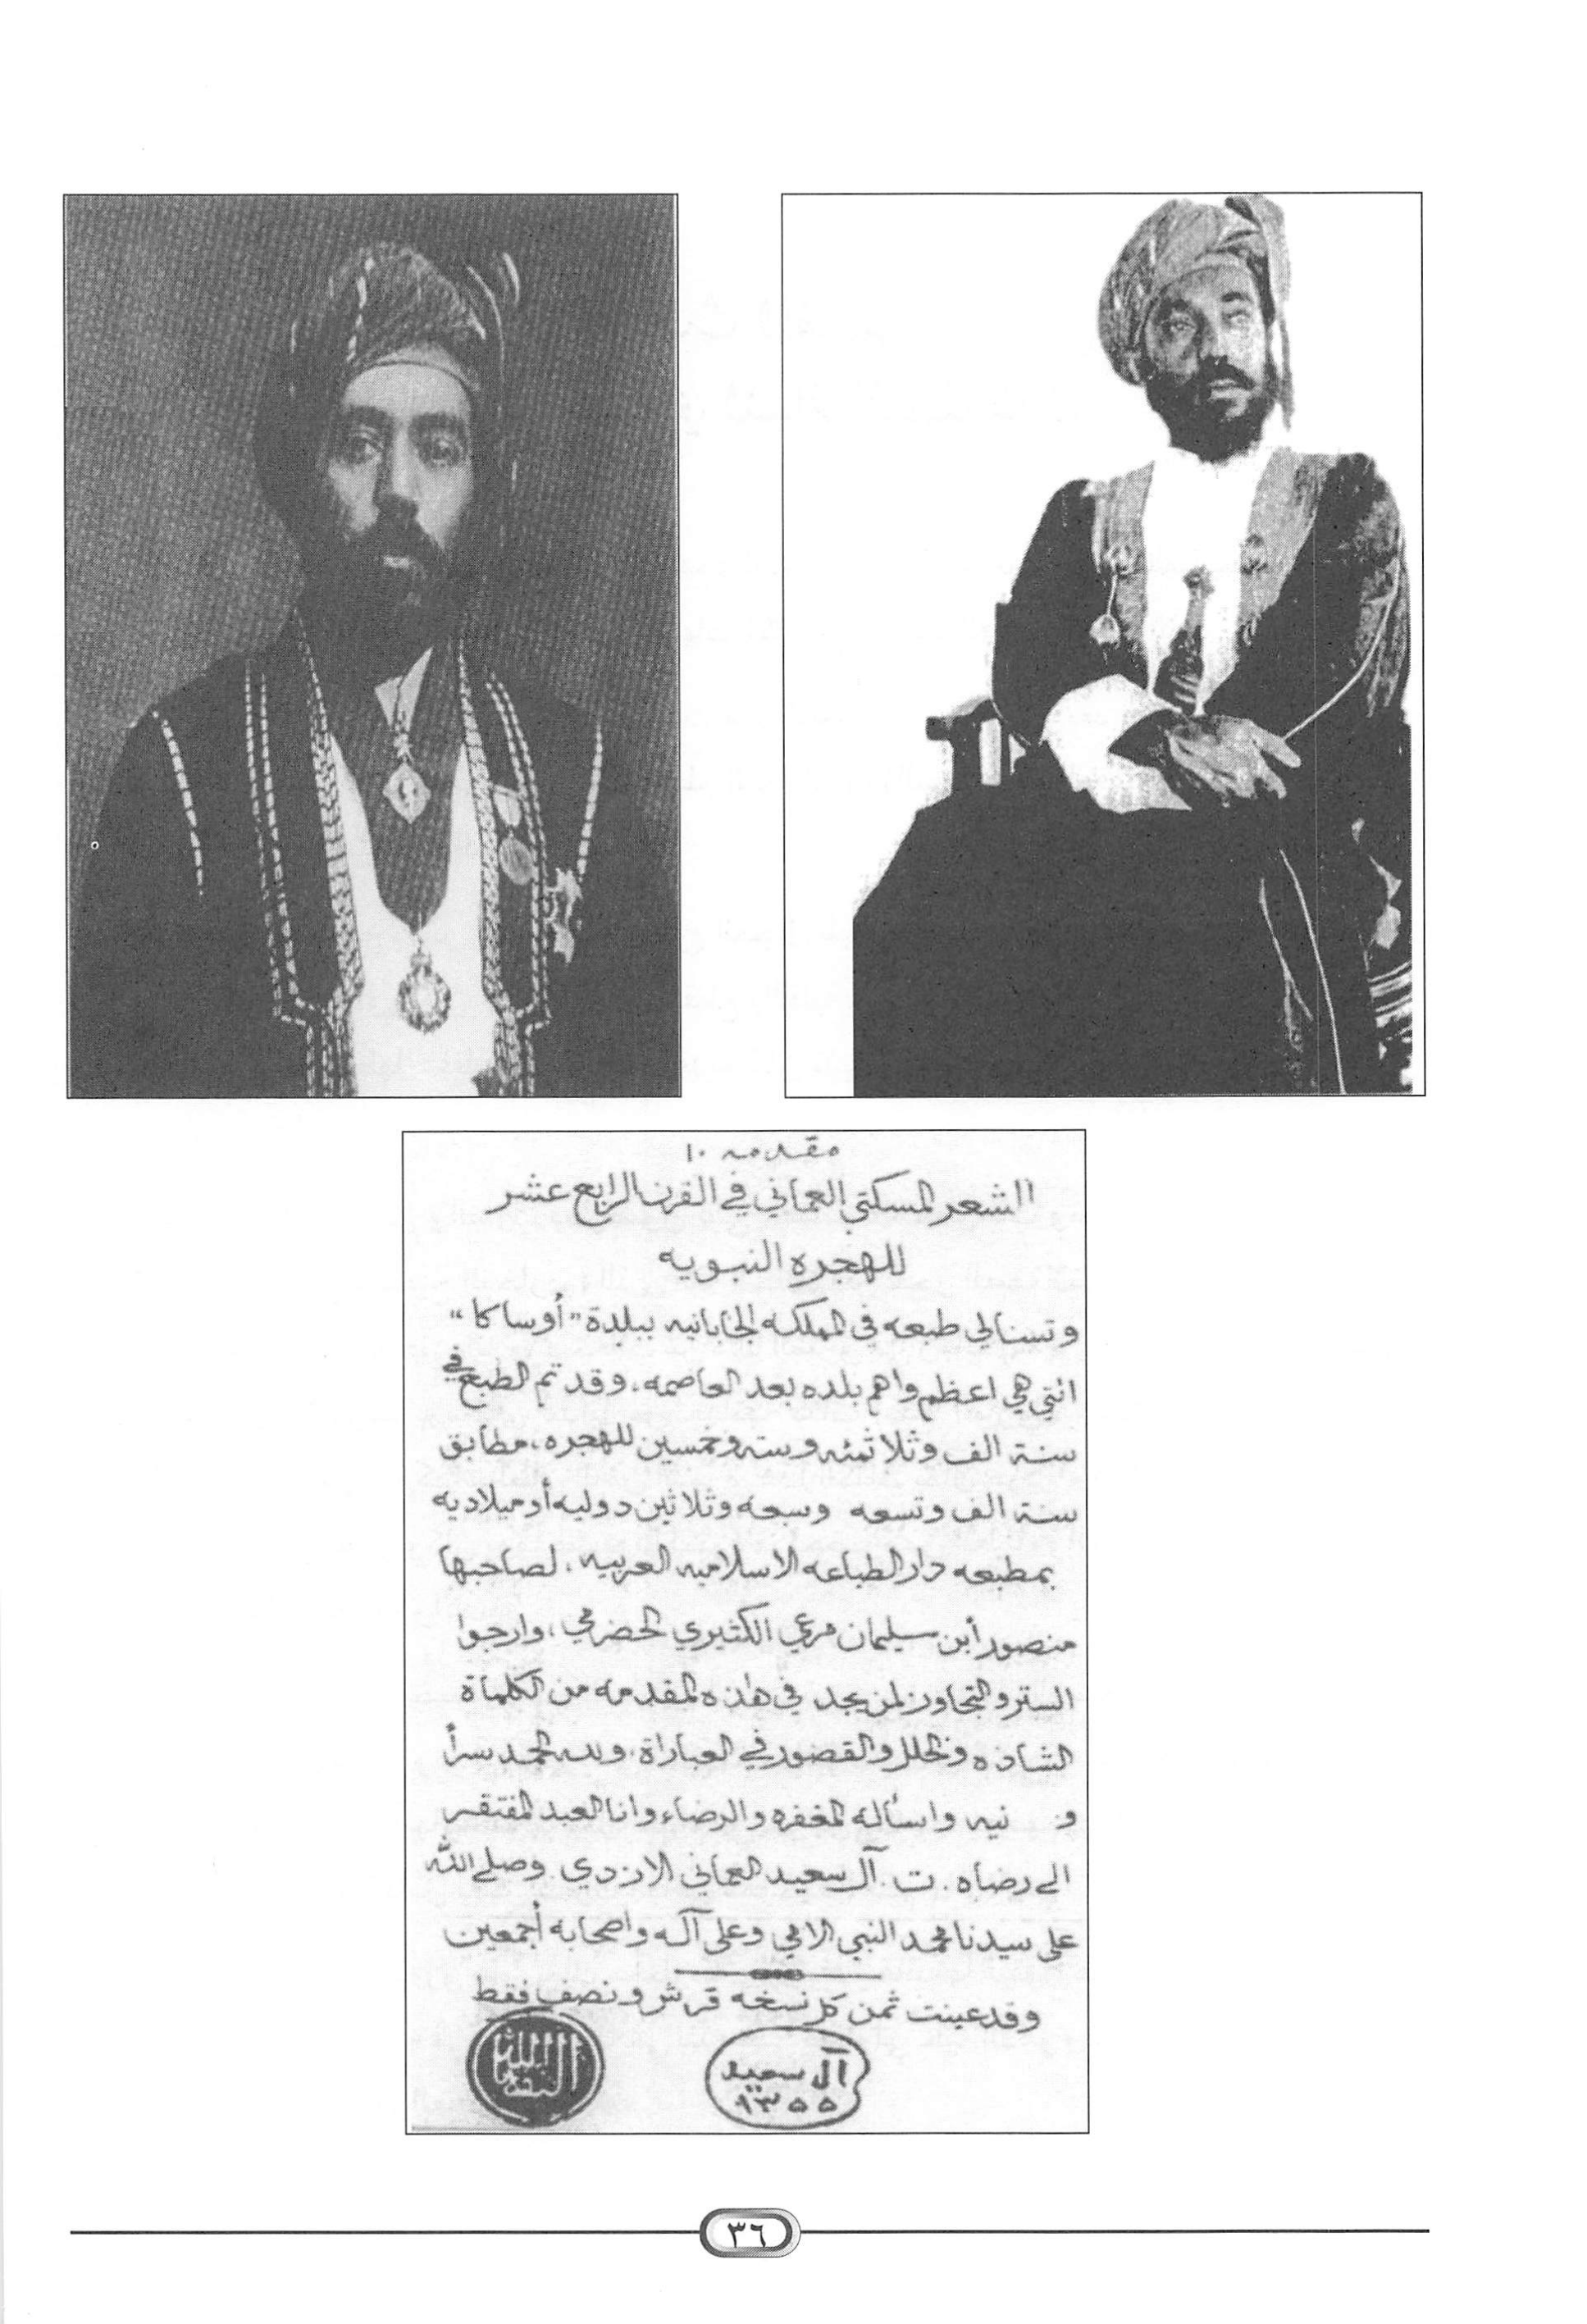 مقدمه ١٠
الشعر المسكتي العماني في القرن الرابع عشر
للهجره النبويه
وتسنالي طبعه في المملكه الجابانيه ببلدة "أوساكا"
التي هي اعظم واهم بلده بعد العاصمه، وقد تم الطبع في
سنة الف وثلاثمئه وسته وخمسين للهجره، مطابق
سنة الف وتسعه وسبعه وثلاثين دوليه أو ميلاديه
بمطبعه دار الطباعه الاسلاميه العربيه، لصاحبها
منصور أبن سليمان مرعي الكثيري الحضرمي، وارجوا
الستر والتجاوز لمن يجد في هذه المقدمه من الكلماة
الشاذه والخلل والقصور في العباراة، ولله الحمد سراً
و نيه واسأله المغفره والرضاء وانا العبد المفتقر
الى رضاه. ت. آل سعيد العماني الازدي. وصلى الله
على سيدنا محمد النبي الامي وعلى آله واصحابه أجمعين
وقد عينت ثمن كل نسخه قرش ونصف فقط
آل سعيد
١٣٥٥
٣٦